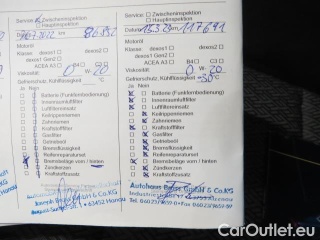 Service Zwischeninspektion
Hauptinspektion
2022 km
Motoröl
Klasse: dexos1 dexos2
dexos1 Gen2
ACEA A3 B4 C3
Viskosität 0 W- 20
Gefrierschutz, Kühlflüssigkeit
Ja Nein
Batterie (Funkfernbedienung)
Innenraumluftfilter
Luftfiltereinsatz
Keilrippenriemen
Zahnriemen
Kraftstofffilter
Gasfilter
Getriebeöl
Bremsflüssigkeit
Reifenreparaturset
Bremsbeläge vorn / hinten
Zündkerzen
Kraftstoffzusatz
63452 Hanau
Service Zwischeninspektion
Hauptinspektion
km 117691
Motoröl
Klasse: dexos1 dexos2
dexos1 Gen2
ACEA A3 B4 C3
Viskosität 0 W- 20
Gefrierschutz, Kühlflüssigkeit -30°C
Ja Nein
Batterie (Funkfernbedienung)
Innenraumluftfilter
Luftfiltereinsatz
Keilrippenriemen
Zahnriemen
Kraftstofffilter
Gasfilter
Getriebeöl
Bremsflüssigkeit
Reifenreparaturset
Bremsbeläge vorn / hinten
Zündkerzen
Kraftstoffzusatz
Autohaus GmbH & Co.KG
CarOutlet.eu